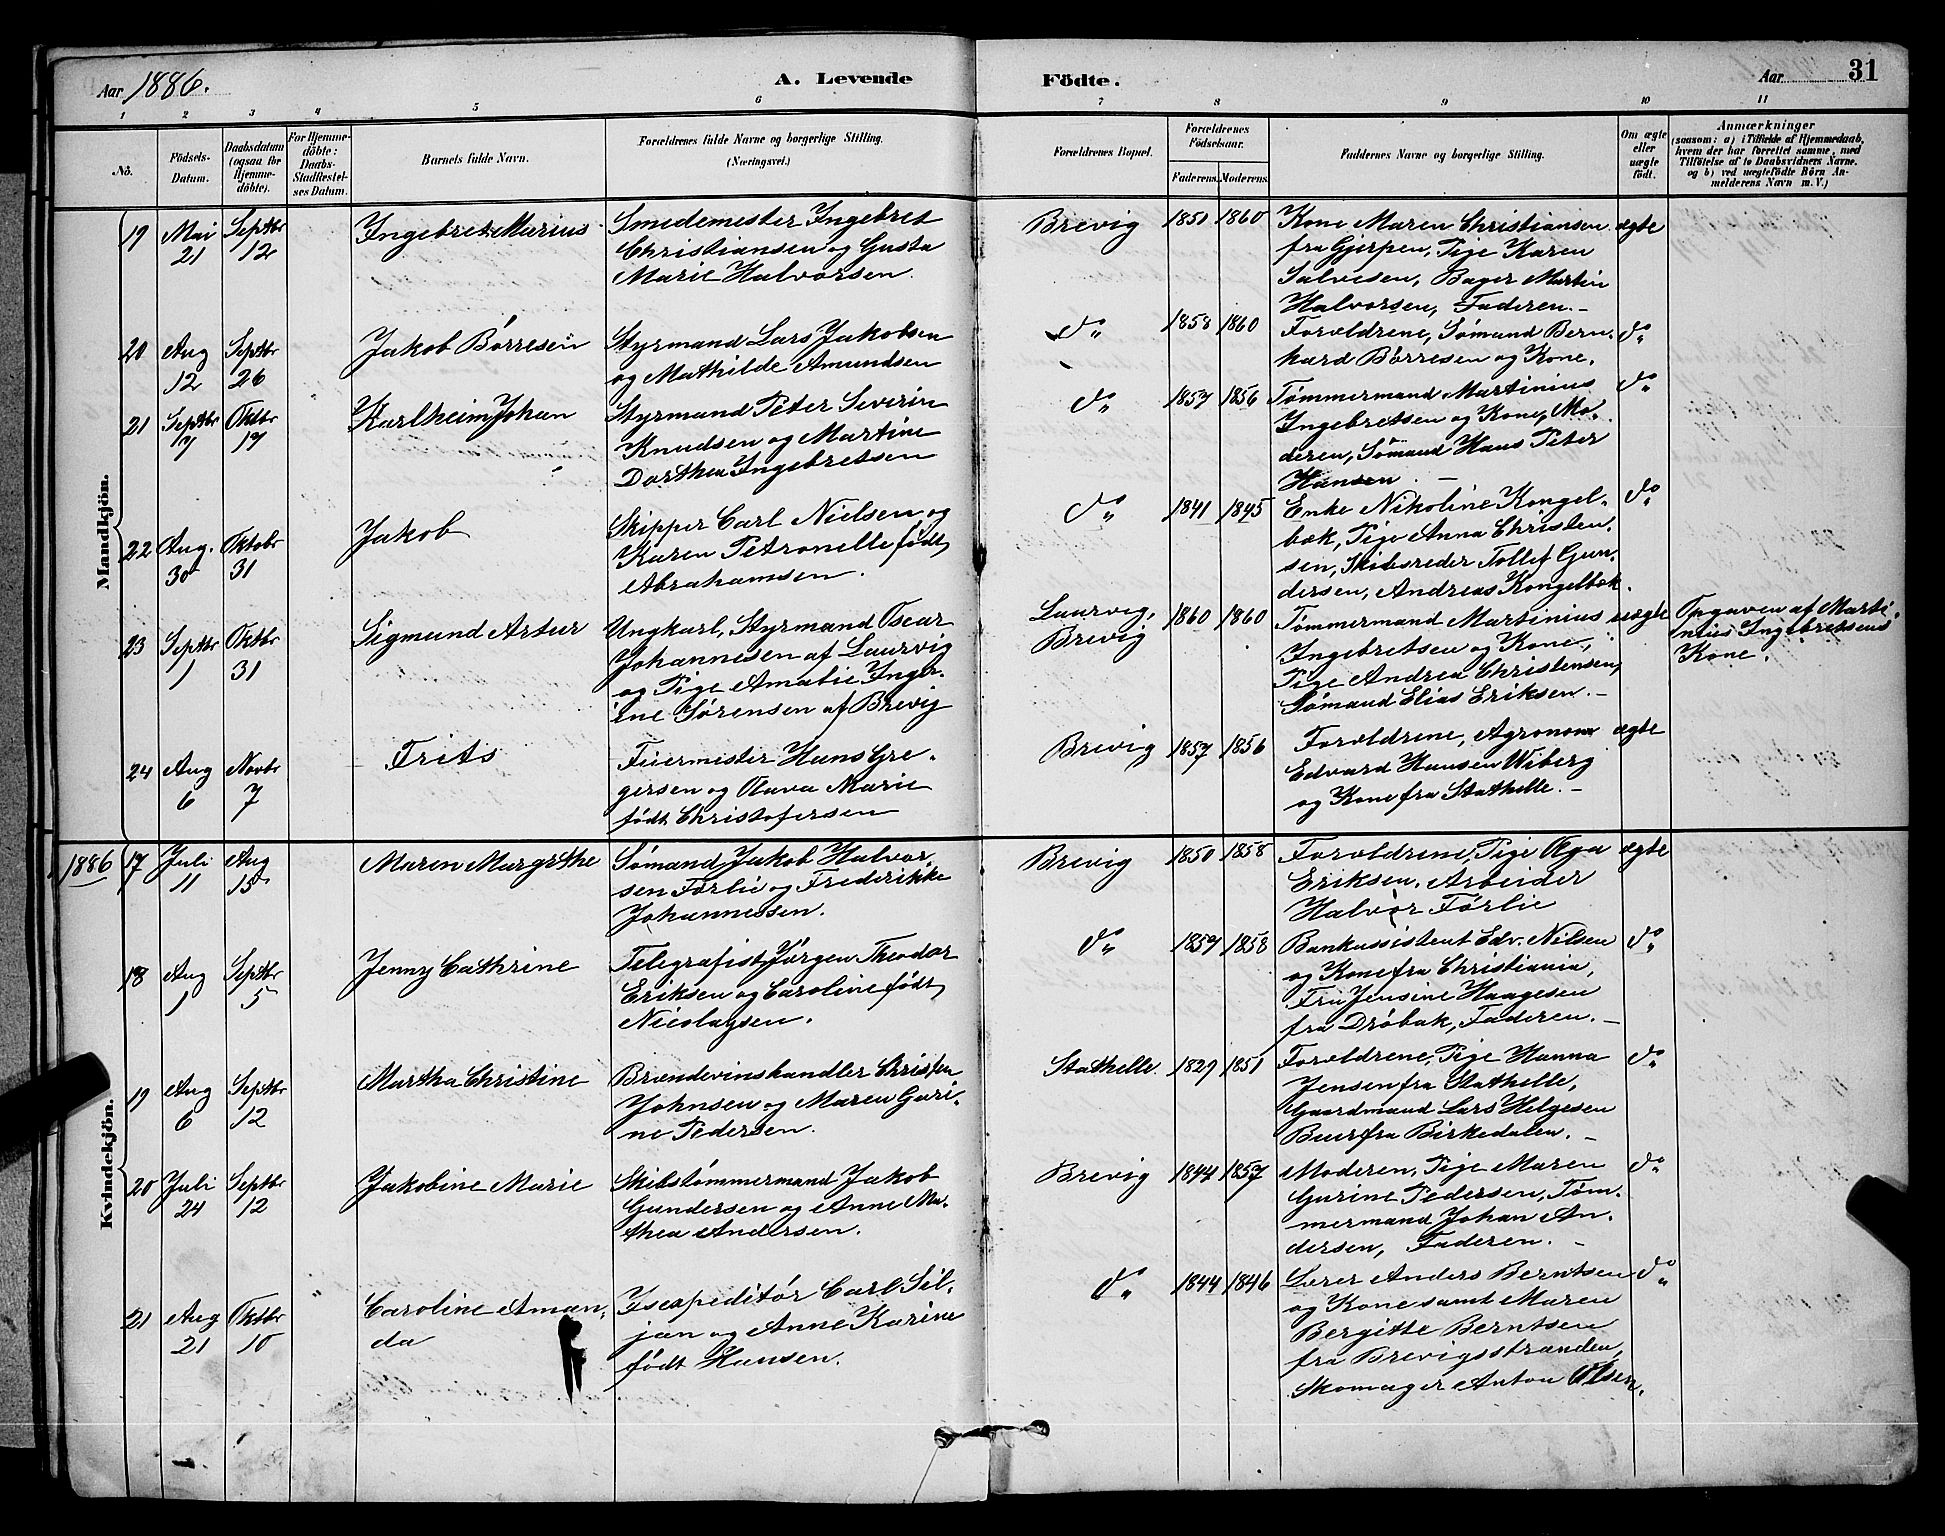 Aar 1886.
A. Levende
Födte.
Aar
31
1 2 3 4 5 6 7 8 9 10 11
No.
Födsels-
Datum.
Daabsdatum
(ogsaa for
Hjemme-
döbte).
For Hjemme-
döbte:
Daabs-
Stadfæstel-
ses Datum.
Barnets fulde Navn.
Forældrenes fulde Navne og borgerlige Stilling.
(Næringsvei.)
Forældrenes Bopæl.
Forældrenes
Födselsaar.
Faderens.
Moderens.
Faddernes Navne og borgerlige Stilling.
Om ægte
eller
uægte
födt.
Anmærkninger
(saasom: a) i Tilfælde af Hjemmedaab,
hvem der har forrettet samme, med
Tilföielse af to Daabsvidners Navne.
og b) ved uægtefödte Börn An-
melderens Navn m. V.)
Mandkjön.
19
Mai
21
Septbr
12
Ingebret Marius
Smedemester Ingebret
Christiansen og Gusta
Marie Halvorsen.
Brevig
1850 1860
Kone Maren Christiansen
fra Gjerpen, Pige Karen
Salvesen, Bager Martin
Halvorsen, Faderen.-
ægte
20
Aug
12
Septbr
26
Jakob Börresen
Styrmand Lars Jakobsen
og Mathilde Amundsen
do
1858 1860
Forældrene, Sömand Bern-
hard Börresen og Kone.
do
21
Septbr
7
Oktbr
17
Karlheim Johan
Styrmand Peter Severin
Knudsen og Martine
Dorthea Ingebretsen
do
1857 1856
Tömmermand Martinius
Ingebretsen og Kone, Mo-
deren, Sömand Hans Peter
Hansen. -
do
22
Aug.
30
Oktobr
31
Jakob
Skipper Carl Nielsen og
Karen Petronelle född
Abrahamsen.
do
1841 1845
Enke Nikoline Kongel-
bæk, Pige Anna Christen-
sen, Skibsreder Tollef Gun-
dersen, Andreas Kongelbæk.
do
23
Septbr
1
Oktbr
31
Sigmund Artur
Ungkarl, Styrmand Oscar
Johannesen af Laurvig
og Pige Amalie Inger-
ine Sörensen af Brevig
Laurvig,
Brevig
1860 1860
Tömmermand Martinius
Ingebretsen og Kone,
Pige Andrea Christensen,
Sömand Elias Eriksen.-
uægte
Opgaven af Marti-
nius Ingebretsens
Kone.
24
Aug
6
Novbr
7
Frits
Feiermester Hans Gre-
gersen og Olava Marie
född Christofersen
Brevig
1857 1856
Forældrene, Agronom
Edvard Hansen Wiberg
og Kone fra Stathelle.-
ægte
Kvindekjön.
1886
17
Juli
11
Aug
15
Maren Margrethe
Sömand Jakob Halvor-
sen Förlie og Frederikke
Johannessen.
Brevig
1850 1858
Forældrene, Pige
Eriksen, Arbeider
Halvor Förlie
ægte
18
Aug
1
Septbr
5
Jenny Cathrine
Telegrafist Jörgen Theodor
Eriksen og Caroline född
Nicolaysen.
do
1857 1858
Bankassistent Edv. Nilsen
og Kone fra Christiania,
Fru Jensine Haagesen
fra Dröbak, Faderen.-
do
19
Aug
6
Septbr
12
Martha Christine
Brændevinshandler Christen
Johnsen og Maren Guri-
ne Pedersen.
Stathelle.
1829 1851
Forældrene, Pige Hanna
Jensen fra Stathelle,
Gaardmand Lars Helgesen
Buer fra Birkedalen.-
do
20
Juli
24
Septbr
12
Jakobine Marie
Skibstömmermand Jakob
Gundersen og Anne Ma-
thea Andersen.
Brevig
1844 1857
Moderen, Pige Maren
Gurine Pedersen, Töm-
mermand Johan An-
dersen, Faderen.-
do
21
Aug
21
Oktbr
10
Caroline Aman-
da
Isexpeditör Carl Sil-
jan og Anne Karine
född Hansen.
do
1844 1846
Lærer Anders Berntsen
og Kone samt Maren
Bergitte Berntsen
fra Brevigsstranden,
Skomager Anton Olsen.
do